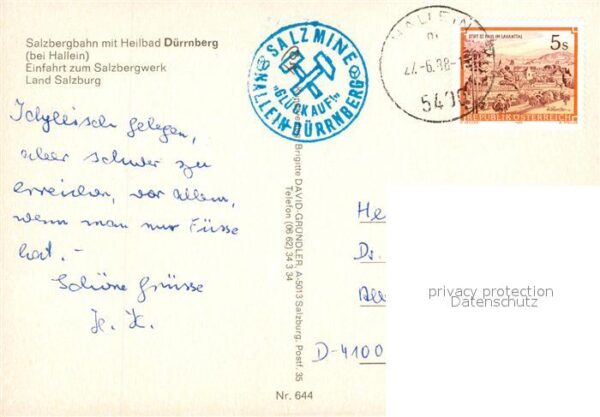 Salzbergbahn mit Heilbad Dürrnberg
(bei Hallein)
Einfahrt zum Salzbergwerk
Land Salzburg
SALZMINE
"GLÜCKAUF!"
HALLEIN-DÜRRNBERG
HALLEIN
5400
STIFT ST. PAUL IM LAVANTTAL
5s
REPUBLIK ÖSTERREICH
Idyllisch gelegen,
aber schwer zu
erreichen, vor allem,
wenn man nur Füsse
hat. –
Schöne Grüsse
Brigitte DAVID-GRÜNDLER, A-5013 Salzburg, Postf. 35
Telefon (06 62) 34 3 34
He
Dr.
All
D-4100
privacy protection
Datenschutz
Nr. 644